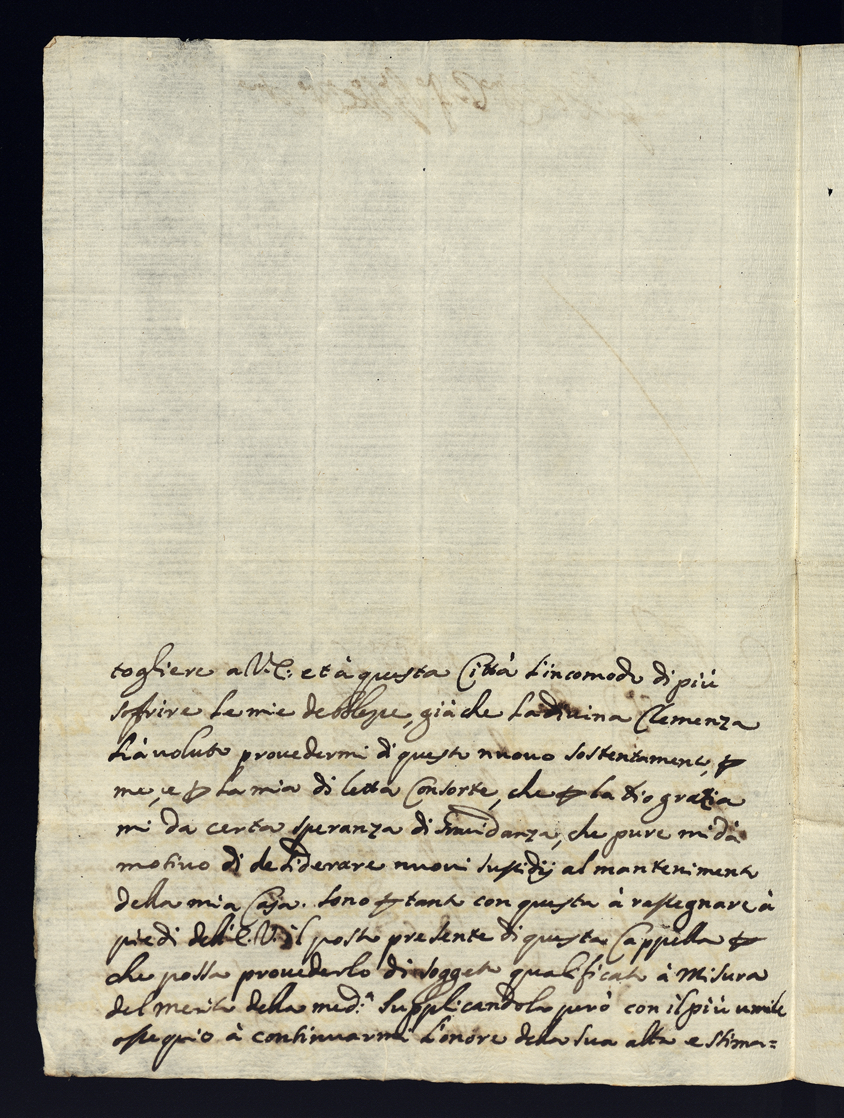 togliere a V.E: et à questa Città l'incomodo di più
soffrire le mie debbleze, già che la divina Clemenza
hà voluto provedermi di questo nuovo sostentamento, p
me, e p la mia diletta Consorte, che p la Dio gratia
mi da certa speranza di Fravidanza, che pure mi dà
motivo di desiderare nuovi sussidij al mantenimento
della mia Casa. Sono p tanto con questa à rassegnare à
piedi dell'E.V. il posto presente di questa Cappella p
che possa provederlo di soggeto qualificato à misura
del merito della med:ª supplicandola però con il più umile
ossequio à continuarmi l'onore della sua alta e stima=